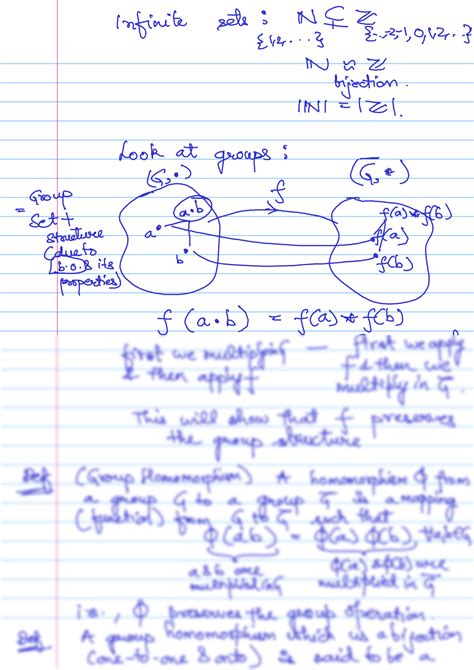 Infinite sets : ℕ ⊊ ℤ
{1,2,...} {..-2,-1,0,1,2,..}
ℕ ≈ ℤ
bijection.
|ℕ| = |ℤ|.
Look at groups :
(G, •) (G̅, *)
Group
= Set +
structure
(due to
b.o. & its
properties)
a•b f f(a) * f(b)
a• f(a)
b• f(b)
f (a • b) = f(a) * f(b)
first we multiplying — first we apply
& then apply f f & then we
multiply in G̅
This will show that f preserves
the group structure
Def (Group Homomorphism) A homomorphism ϕ from
a group G to a group G̅ is a mapping
(function) from G to G̅ such that
ϕ(ab) = ϕ(a) ϕ(b), ∀a,b∈G
a & b are ϕ(a) & ϕ(b) are
multiplied in G multiplied in G̅
i.e., ϕ preserves the group operation.
Def A group homomorphism which is a bijection
(one-to-one & onto) is said to be a